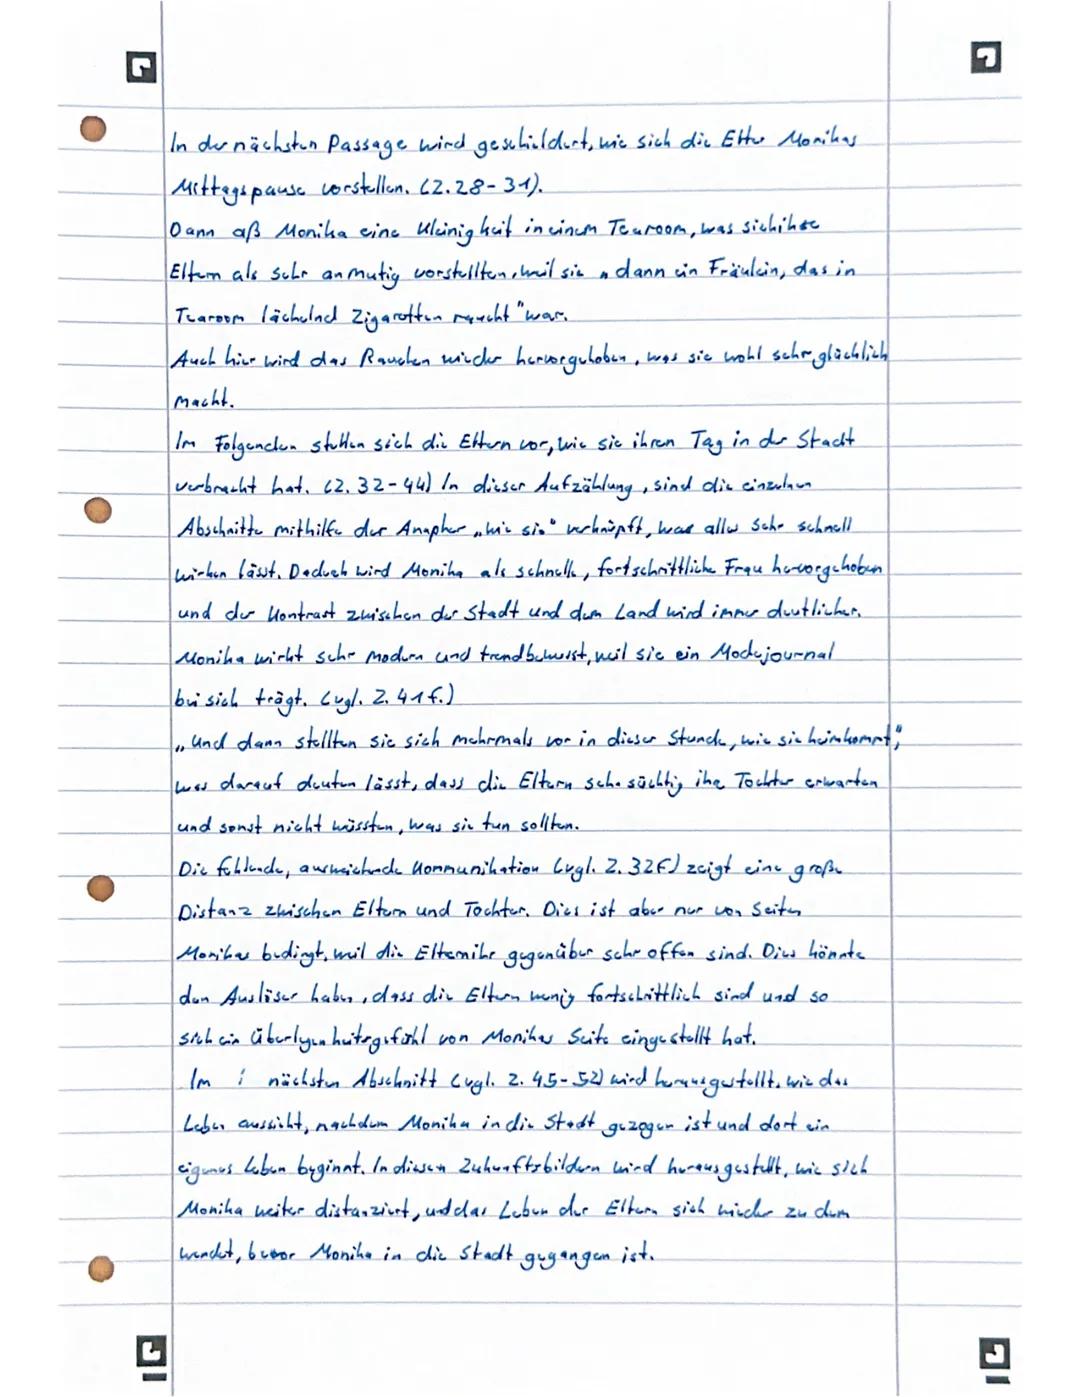 In der nächsten Passage wird geschildert, wie sich die Elter Monikas
Mittagspause vorstellen. (Z. 28-31).
Dann aß Monika eine Kleinigkeit in einem Tearoom, was sich ihre
Eltern als sehr anmutig vorstellten, weil sie „dann ein Fräulein, das in
Tearoom lächelnd Zigaretten raucht" war.
Auch hier wird das Rauchen wieder hervorgehoben, was sie wohl sehr glücklich
macht.
Im Folgenden stellen sich die Eltern vor, wie sie ihren Tag in der Stadt
verbracht hat. (Z. 32-44) In dieser Aufzählung, sind die einzelnen
Abschnitte mithilfe der Anapher „wie sie" verknüpft, was alles sehr schnell
wirken lässt. Dadurch wird Monika als schnelle, fortschrittliche Frau hervorgehoben
und der Kontrast zwischen der Stadt und dem Land wird immer deutlicher.
Monika wirkt sehr modern und trendbewusst, weil sie ein Modejournal
bei sich trägt. (vgl. Z. 41f.)
„Und dann stellten sie sich mehrmals vor in dieser Stunde, wie sie heimkommt,"
was darauf deuten lässt, dass die Eltern sehnsüchtig ihre Tochter erwarten
und sonst nicht wüssten, was sie tun sollten.
Die fehlende, ausweichende Kommunikation (vgl. Z. 32f) zeigt eine große
Distanz zwischen Eltern und Tochter. Dies ist aber nur von Seiten
Monikas bedingt, weil die Eltern ihr gegenüber sehr offen sind. Dies könnte
den Auslöser haben, dass die Eltern wenig fortschrittlich sind und so
sich ein Überlegenheitsgefühl von Monikas Seite eingestellt hat.
Im nächsten Abschnitt (vgl. Z. 45-52) wird herausgestellt, wie das
Leben aussieht, nachdem Monika in die Stadt gezogen ist und dort ein
eigenes Leben beginnt. In diesen Zukunftsbildern wird herausgestellt, wie sich
Monika weiter distanziert, und das Leben der Eltern sich wieder zu dem
wendet, bevor Monika in die Stadt gegangen ist.